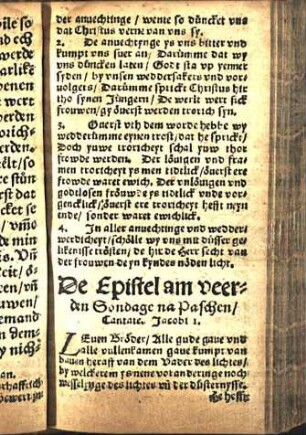 der anuechtinge / wente so düncket vns
dat Christus verne van vns sy.
2. De anuechtynge ys vns bitter vnd
kumpt vns suer an / Darümme dat wy
vns düncken laten / Godt sta vp yenner
syden / by vnsen weddersakers vnd vor-
uolgers / Darümme spricket Christus hir
tho synen Jüngern / De werlt wert sick
frouwen / gy öuerst werden trorich syn.
3. Ouerst vth dem worde hebbe wy
wedderumme eynen trost / dat he spricket /
Doch yuwe troricheyt schal yuw thor
frowde werden. Der löuigen vnd fra-
men troricheyt ys men tidtlick / öuerst ere
frowde waret ewich. Der vnlöuigen vnd
godtlosen fröuwde ys tidtlick vnde vor-
gencklick / öuerst ere troricheyt hefft neyn
ende / sonder waret ewichlick.
4. In aller anuechtinge vnd wedder-
werdicheyt / schölle wy vns mit düsser ge-
likenisse trösten / de hir de Herr secht van
der frouwen de yn kyndes nöden licht.
De Epistel am veer-
den Sondage na Paschen /
Cantate. Jacobi 1.
LEuen Bröder / Alle gude gaue vnd
alle vullenkamen gaue kumpt van
bauen heraff van dem Vader des lichtes /
by welckerem ys nene voranderinge noch
wesselynge des lichtes vñ der düsternysse.
He hefft